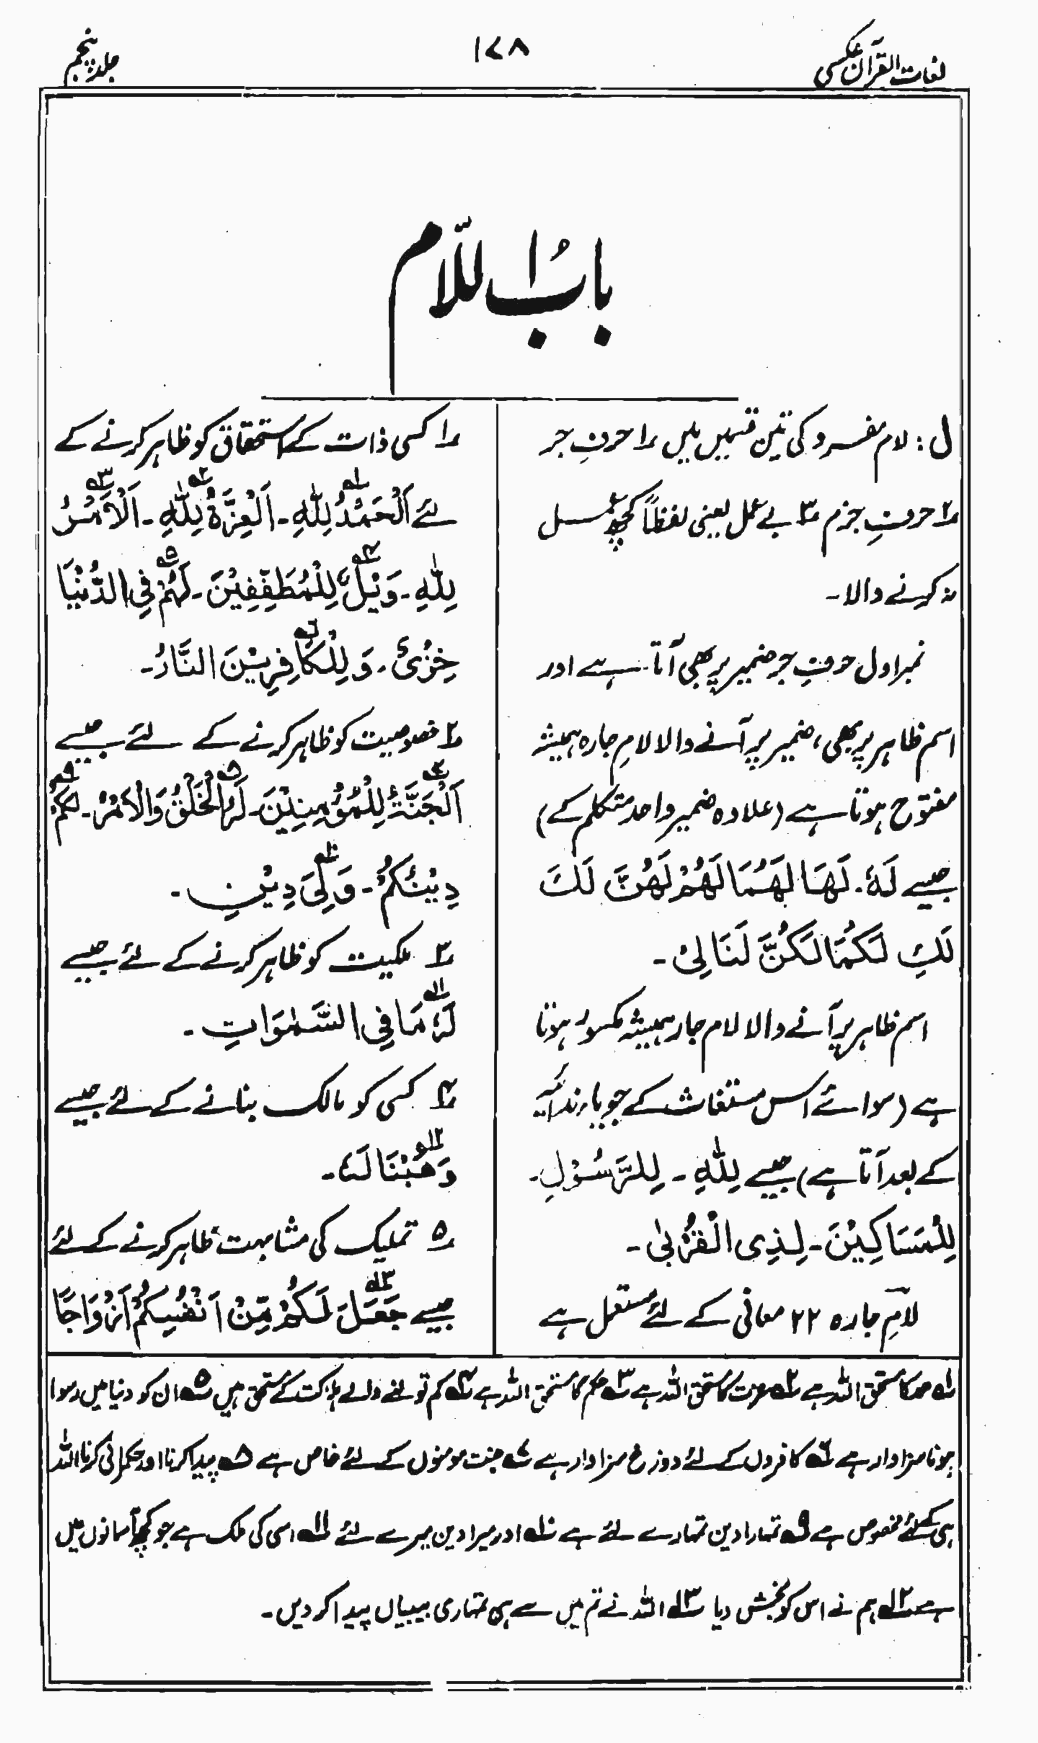 لغات القرآن عکسی
۱۷۸
جلد پنجم
بابُ اللّام
ل: لام مفرد کی تین قسمیں ہیں ۱؍ حرفِ جر
۲؍ حرفِ جزم ۳؍ بے عمل یعنی لفظاً کچھ عمل
نہ کرنے والا۔
نمبر اول حرفِ جر ضمیر پر بھی آتا ہے اور
اسم ظاہر پر بھی، ضمیر پر آنے والا لامِ جارہ ہمیشہ
مفتوح ہوتا ہے (علاوہ ضمیر واحد متکلم کے)
جیسے لَهٗ۔ لَهَا لَهُمَا لَهُمْ لَهُنَّ لَكَ
لَكِ لَكُمَا لَكُنَّ لَنَا لِیْ۔
اسم ظاہر پر آنے والا لام جار ہمیشہ مکسور ہوتا
ہے (سوائے اُس مستغاث کے جو یاء ندائیہ
کے بعد آتا ہے) جیسے لِلّٰهِ ۔ لِلرَّسُوْلِ۔
لِلْمَسَاكِيْنَ۔ لِذِی الْقُرْبٰی ۔
لامِ جارہ ۲۲ معانی کے لئے مستعمل ہے
۱؍ کسی ذات کے استحقاق کو ظاہر کرنے کے
لئے اَلْحَمْدُ لِلّٰهِ۱؎۔ اَلْعِزَّةُ لِلّٰهِ۲؎۔ اَلْاَمْرُ۳؎
لِلّٰهِ۔ وَيْلٌ۴؎ لِّلْمُطَفِّفِيْنَ۔ لَهُمْ۵؎ فِی الدُّنْيَا
خِزْیٌ۔ وَ لِلْكَافِرِيْنَ۶؎ النَّارُ۔
۲؍ خصوصیت کو ظاہر کرنے کے لئے جیسے
اَلْجَنَّةُ لِلْمُؤْمِنِيْنَ۷؎۔ لَهُ الْخَلْقُ۸؎ وَالْاَمْرُ۔ لَكُمْ۹؎
دِيْنُكُمْ۔ وَلِیَ۱۰؎ دِيْنِ ۔
۳؍ ملکیت کو ظاہر کرنے کے لئے جیسے
لَهٗ۱۱؎ مَا فِی السَّمٰوَاتِ ۔
۴؍ کسی کو مالک بنانے کے لئے جیسے
وَهَبْنَا۱۲؎ لَهٗ۔
۵؍ تملیک کی مشابہت ظاہر کرنے کے لئے
جیسے جَعَلَ۱۳؎ لَكُمْ مِّنْ اَنْفُسِكُمْ اَزْوَاجًا
۱؎ حمد کا مستحق اللہ ہے ۲؎ عزت کا مستحق اللہ ہے ۳؎ حکم کا مستحق اللہ ہے ۴؎ کم تولنے والے ہلاکت کے مستحق ہیں ۵؎ ان کو دنیا میں رسوا
ہونا سزاوار ہے ۶؎ کافروں کے لئے دوزخ سزاوار ہے ۷؎ جنت مومنوں کے لئے خاص ہے ۸؎ پیدا کرنا اور حکمرانی کرنا اللہ
ہی کیلئے مخصوص ہے ۹؎ تمہارا دین تمہارے لئے ہے ۱۰؎ اور میرا دین میرے لئے ۱۱؎ اسی کی ملک ہے جو کچھ آسمانوں میں
ہے ۱۲؎ ہم نے اس کو بخش دیا ۱۳؎ اللہ نے تم میں سے ہی تمہاری بیبیاں پیدا کر دیں۔